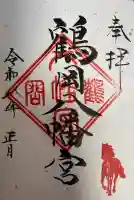 奉拝
鶴岡八幡宮
令和八年 正月